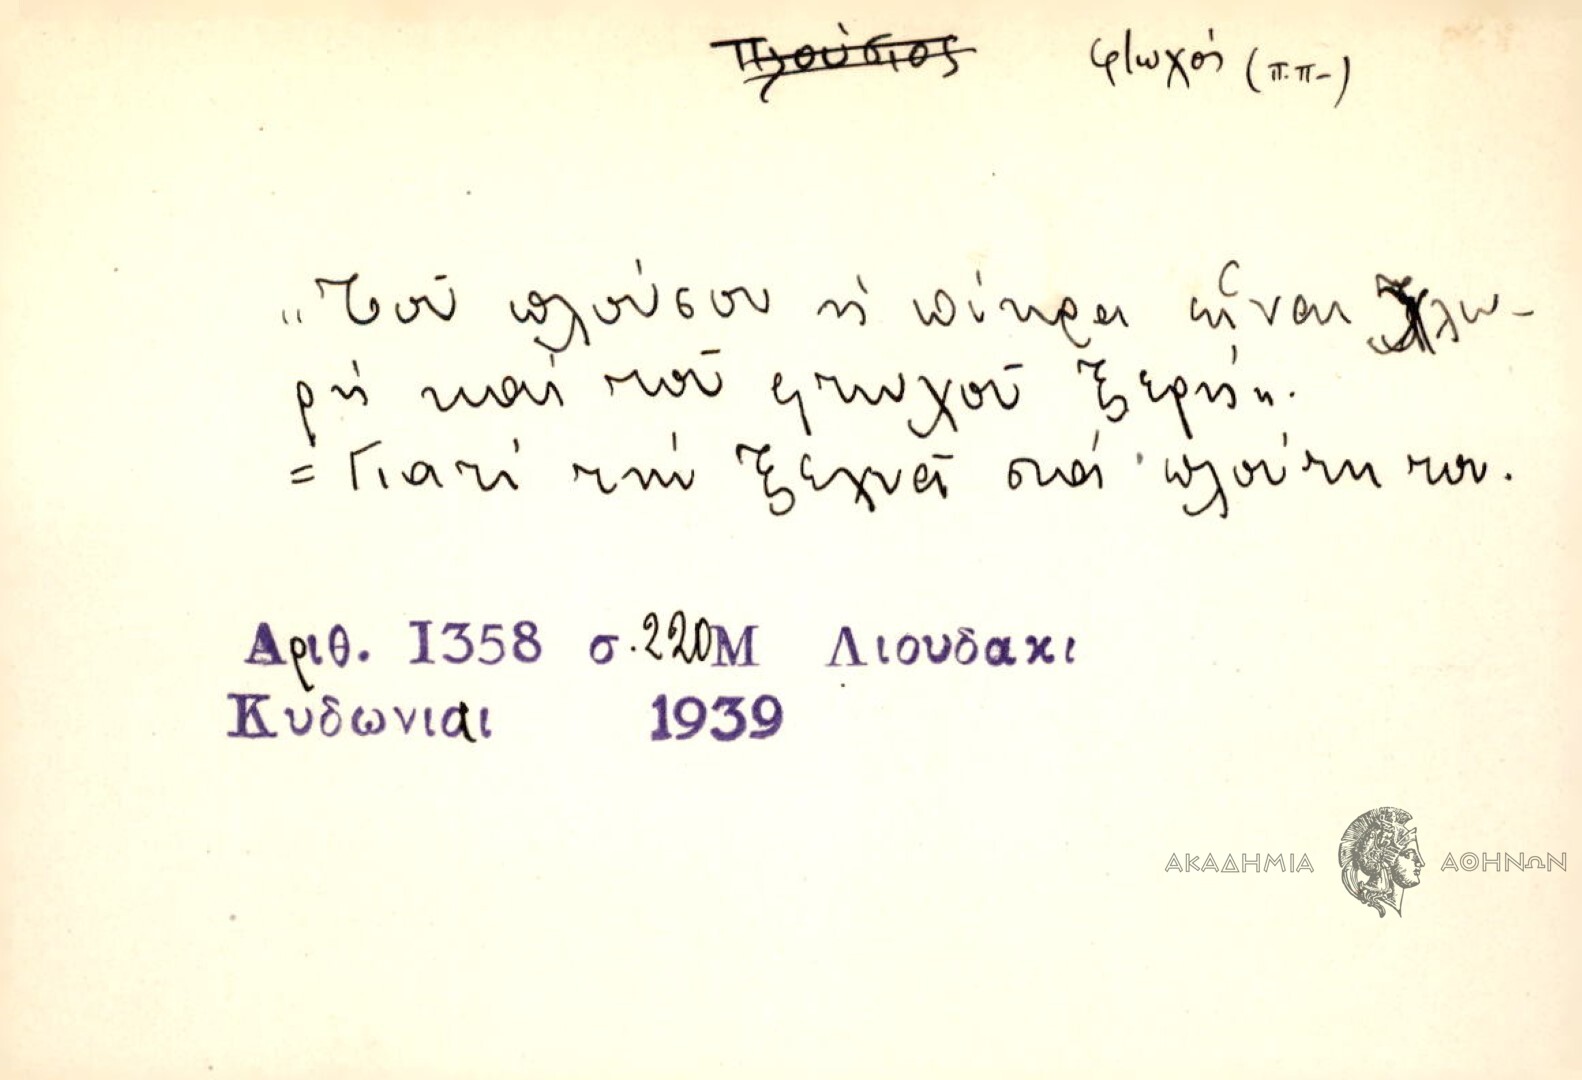 Πλούσιος φτωχός (π.π-)
"Τοῦ πλούσου ἡ πίκρα εἶναι χλω-
ρή καί τοῦ φτωχοῦ ξερή".
= Γιατί τήν ξεχνᾶ στά πλούτη του.
Αριθ. 1358 σ. 220 Μ Λιουδακι
Κυδωνιαι 1939
ΑΚΑΔΗΜΙΑ ΑΘΗΝΩΝ